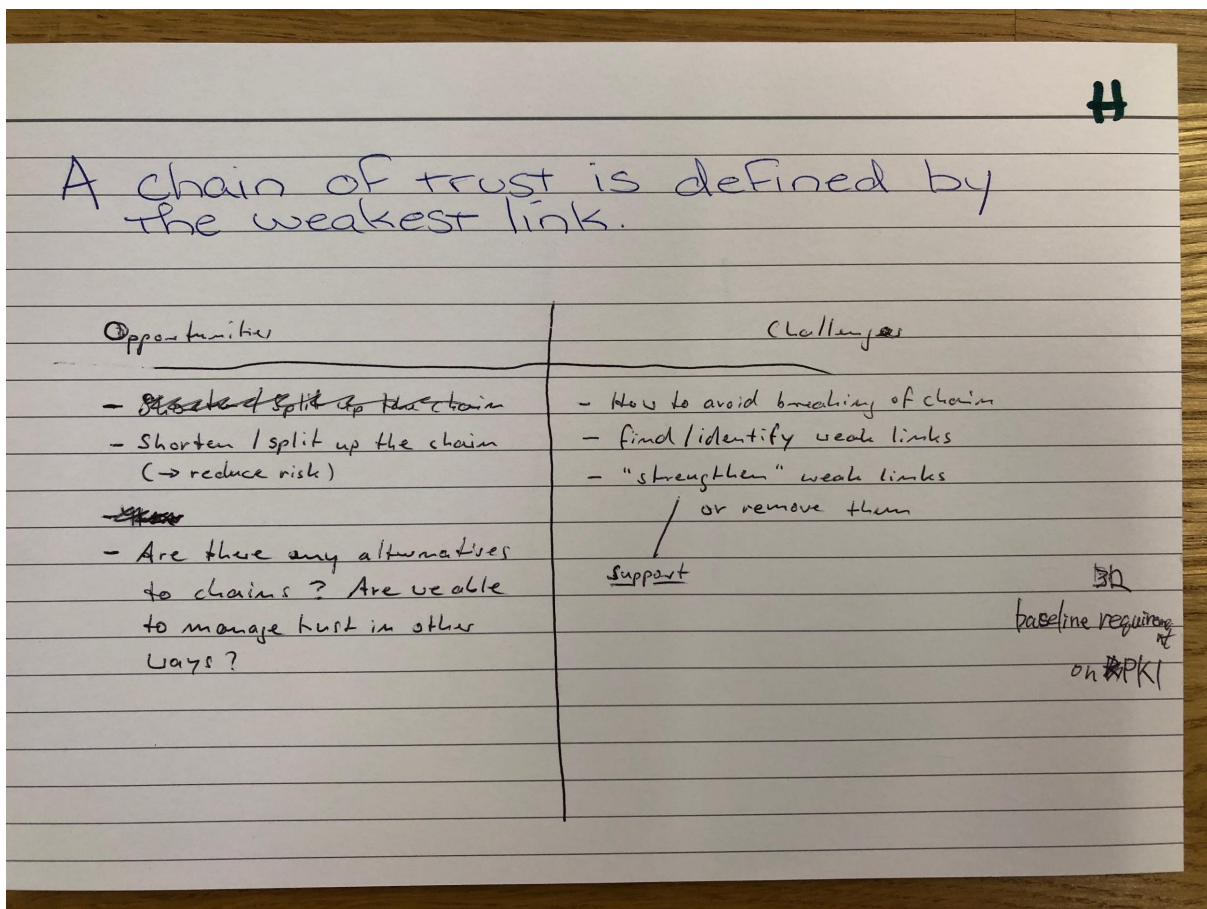 H
A chain of trust is defined by
the weakest link.
Opportunities
Challenges
- Shorten / split up the chain
(→ reduce risk)
- Are there any alternatives
to chains? Are we able
to manage trust in other
ways?
- How to avoid breaking of chain
- find/identify weak links
- "strengthen" weak links
or remove them
support
baseline requirement
on PKI